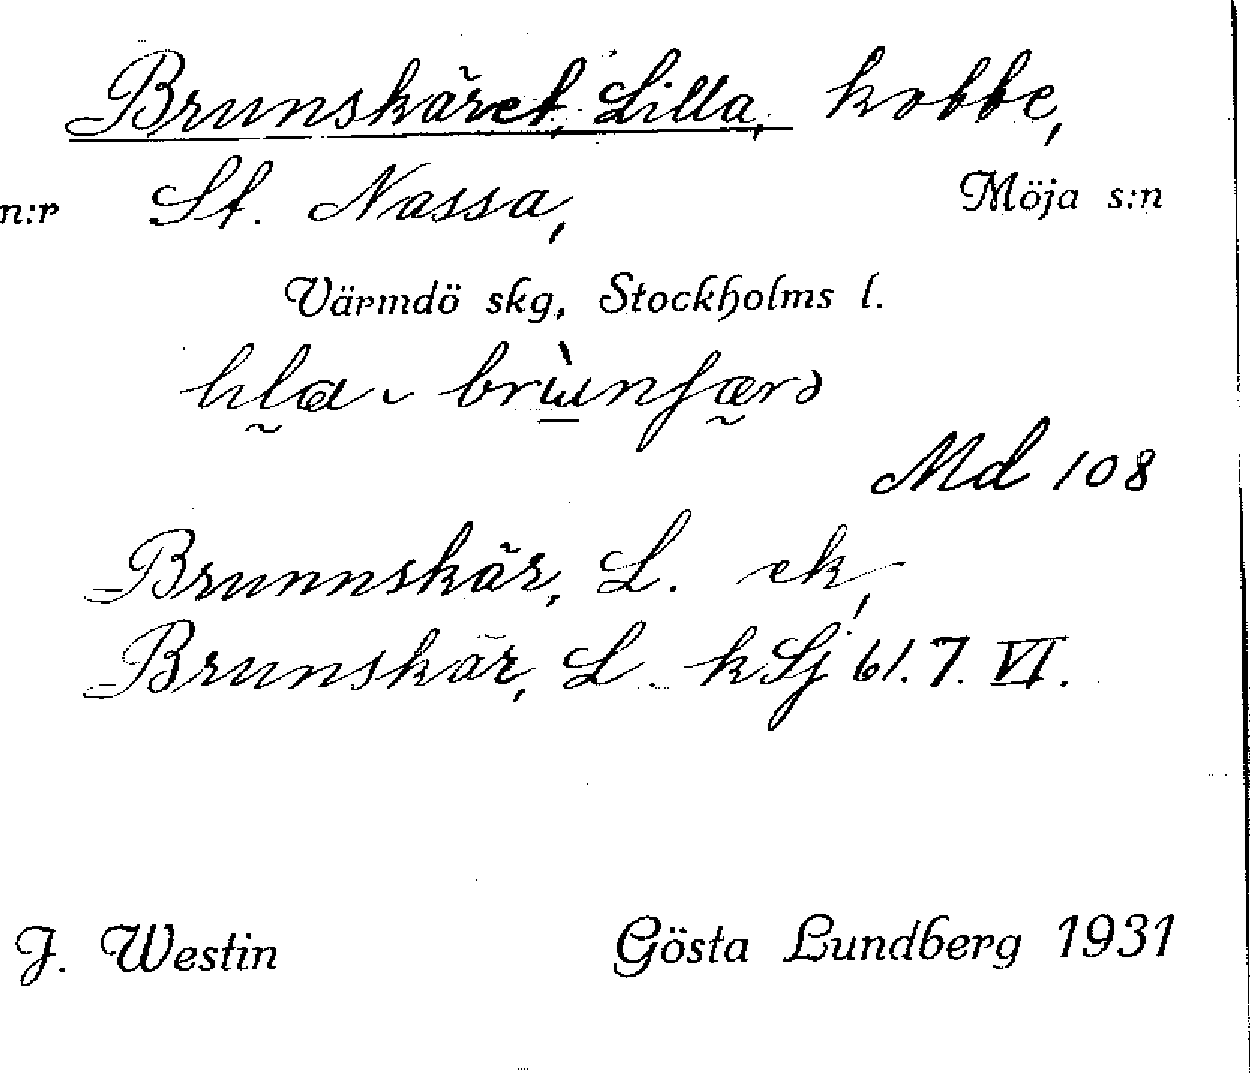 Brunskäret, Lilla, kobbe,
n:r St. Nassa, Möja s:n
Värmdö skg, Stockholms l.
Md 108
Brunnskär, L. ek,
Brunskär, L. kSj 61.7.VI.
J. Westin Gösta Lundberg 1931